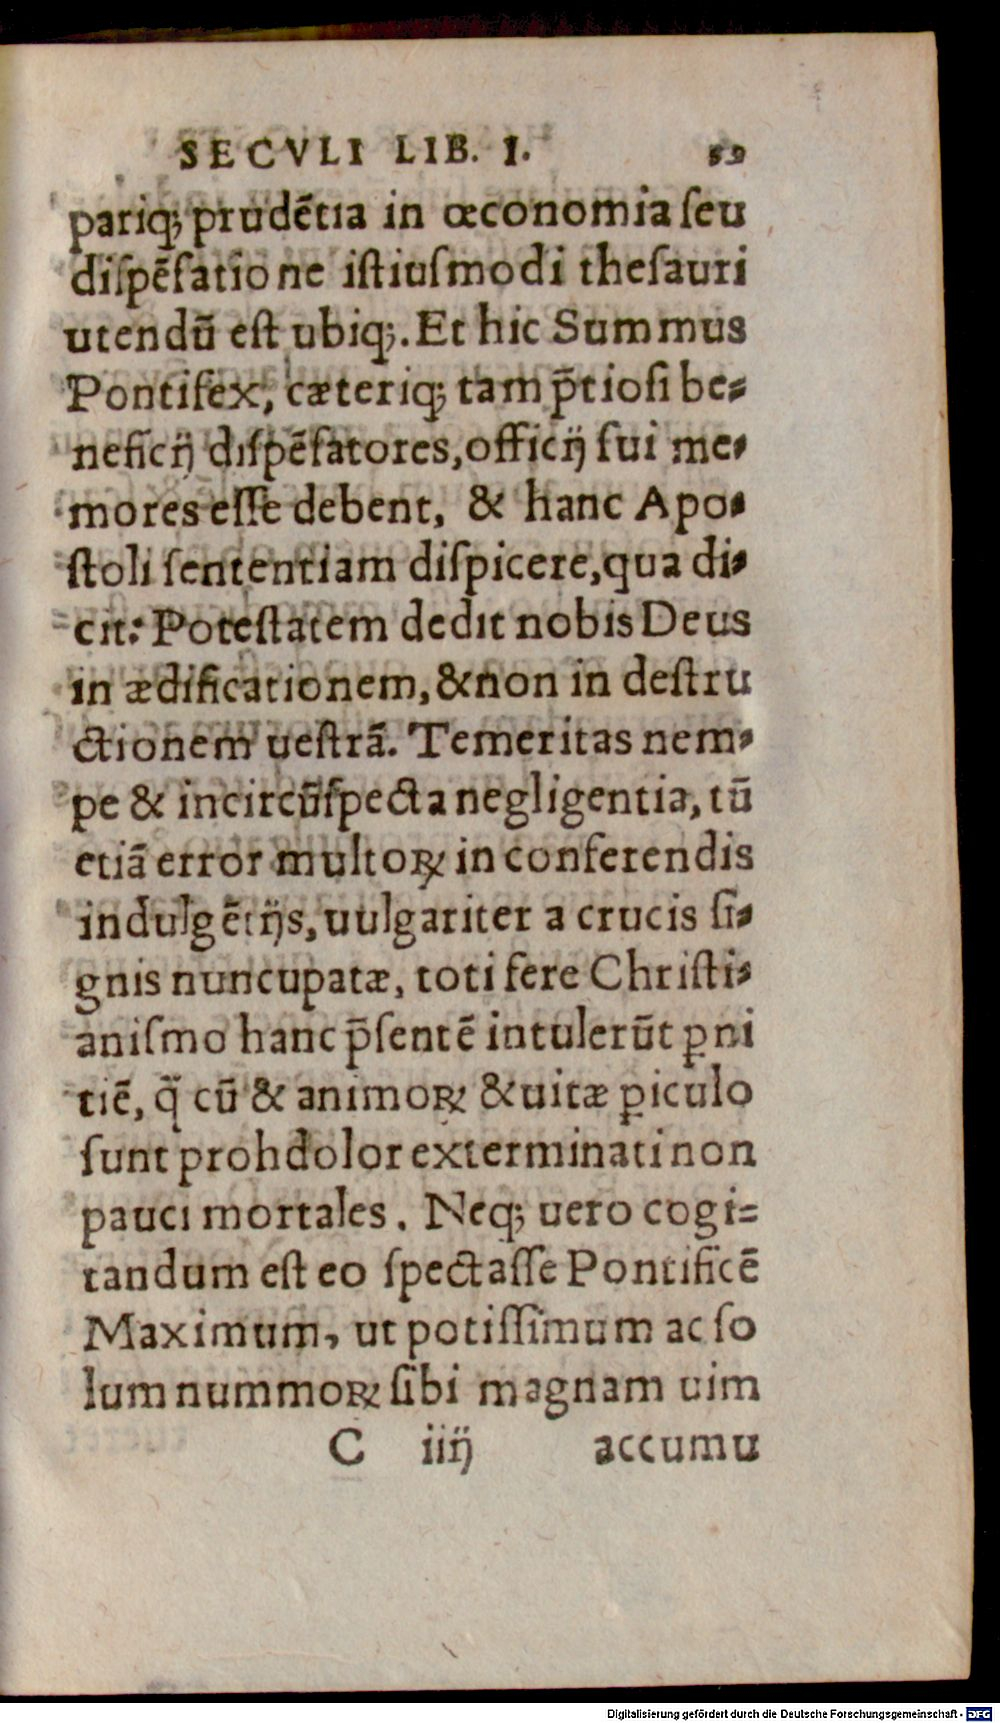 SECVLI LIB. I. 59
pariq; prudẽtia in œconomia ſeu
diſpẽſatione iſtiuſmodi theſauri
utendũ eſt ubiq;. Et hic Summus
Pontifex, cæteriq; tam p̃tioſi be⸗
neficĳ diſpẽſatores, officĳ ſui me⸗
mores eſſe debent, & hanc Apo⸗
ſtoli ſententiam diſpicere, qua di⸗
cit: Poteſtatem dedit nobis Deus
in ædificationem, & non in deſtru
ctionem ueſtrã. Temeritas nem⸗
pe & incircũſpecta negligentia, tũ
etiã error multoꝝ in conferendis
indulgẽtĳs, uulgariter a crucis ſi⸗
gnis nuncupatæ, toti fere Chriſti⸗
aniſmo hanc p̃ſentẽ intulerũt ꝑni
tiẽ, q̃ cũ & animoꝝ & uitæ ꝑiculo
ſunt proh dolor exterminati non
pauci mortales. Neq; uero cogi⸗
tandum eſt eo ſpectaſſe Pontificẽ
Maximum, ut potiſſimum ac ſo
lum nummoꝝ ſibi magnam uim
C iiĳ accumu
Digitalisierung gefördert durch die Deutsche Forschungsgemeinschaft - DFG